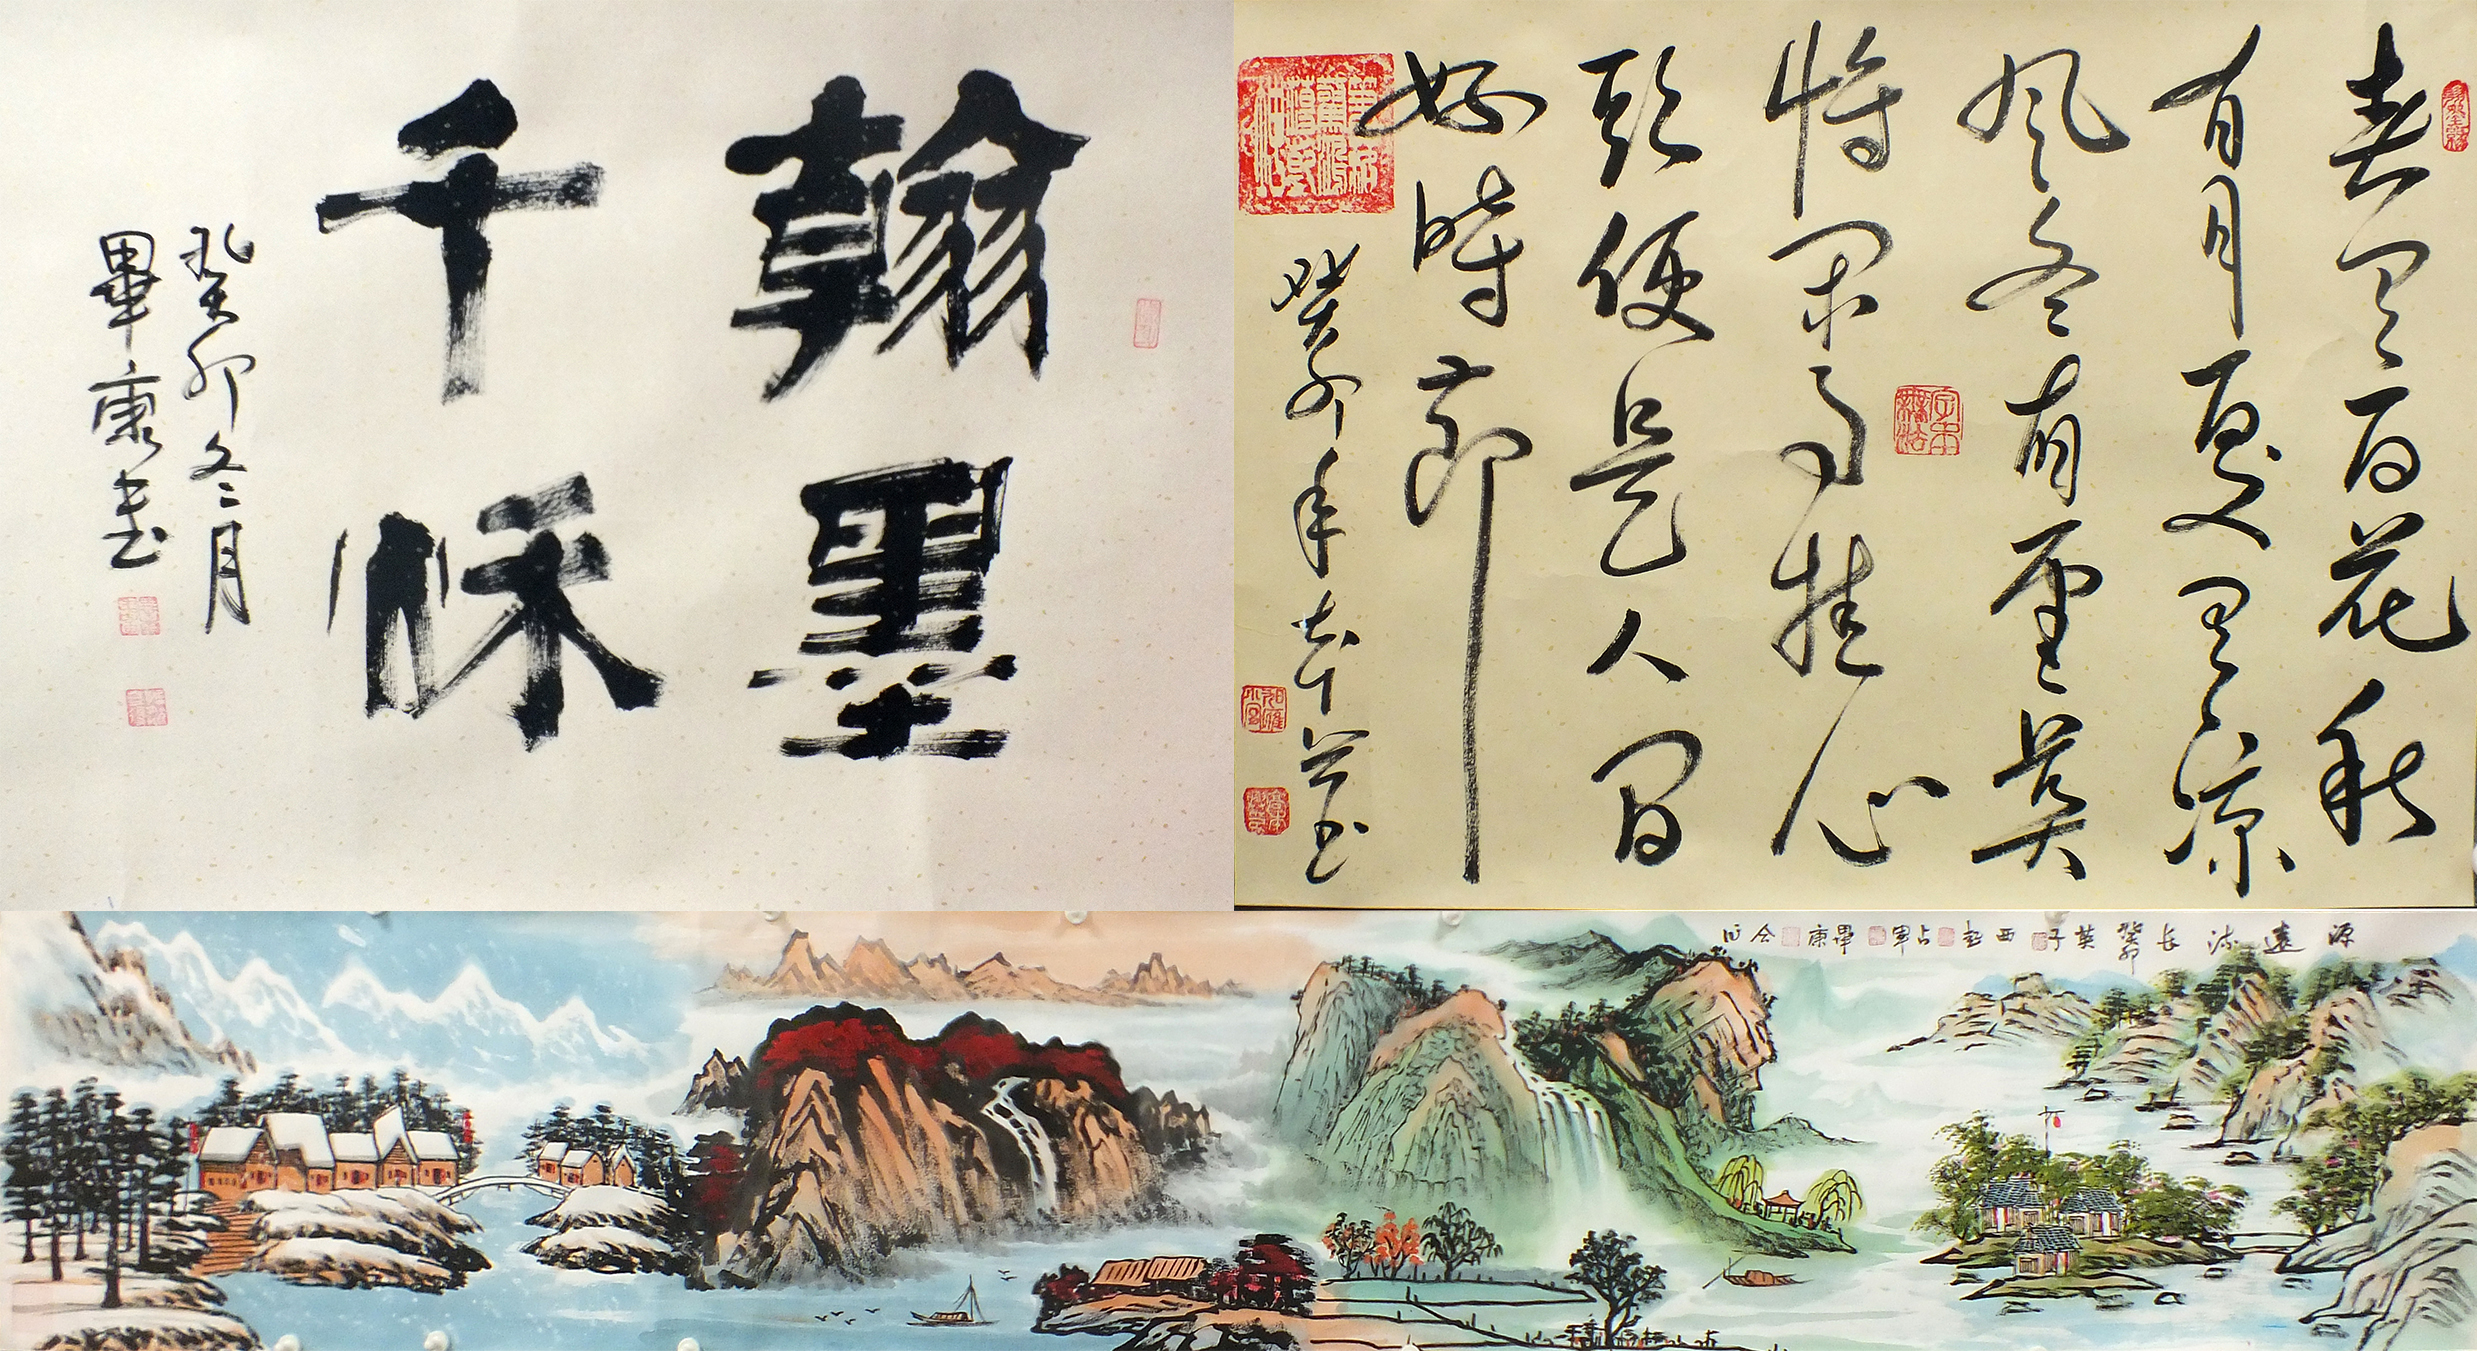 翰墨
千秌
癸卯冬月
畢康書
春有百花秋
有月夏有凉
风冬有雪莫
将闲事挂心
头便是人间
好时节
癸卯年
源遠流長 癸卯 英子 占軍 畢康 合作